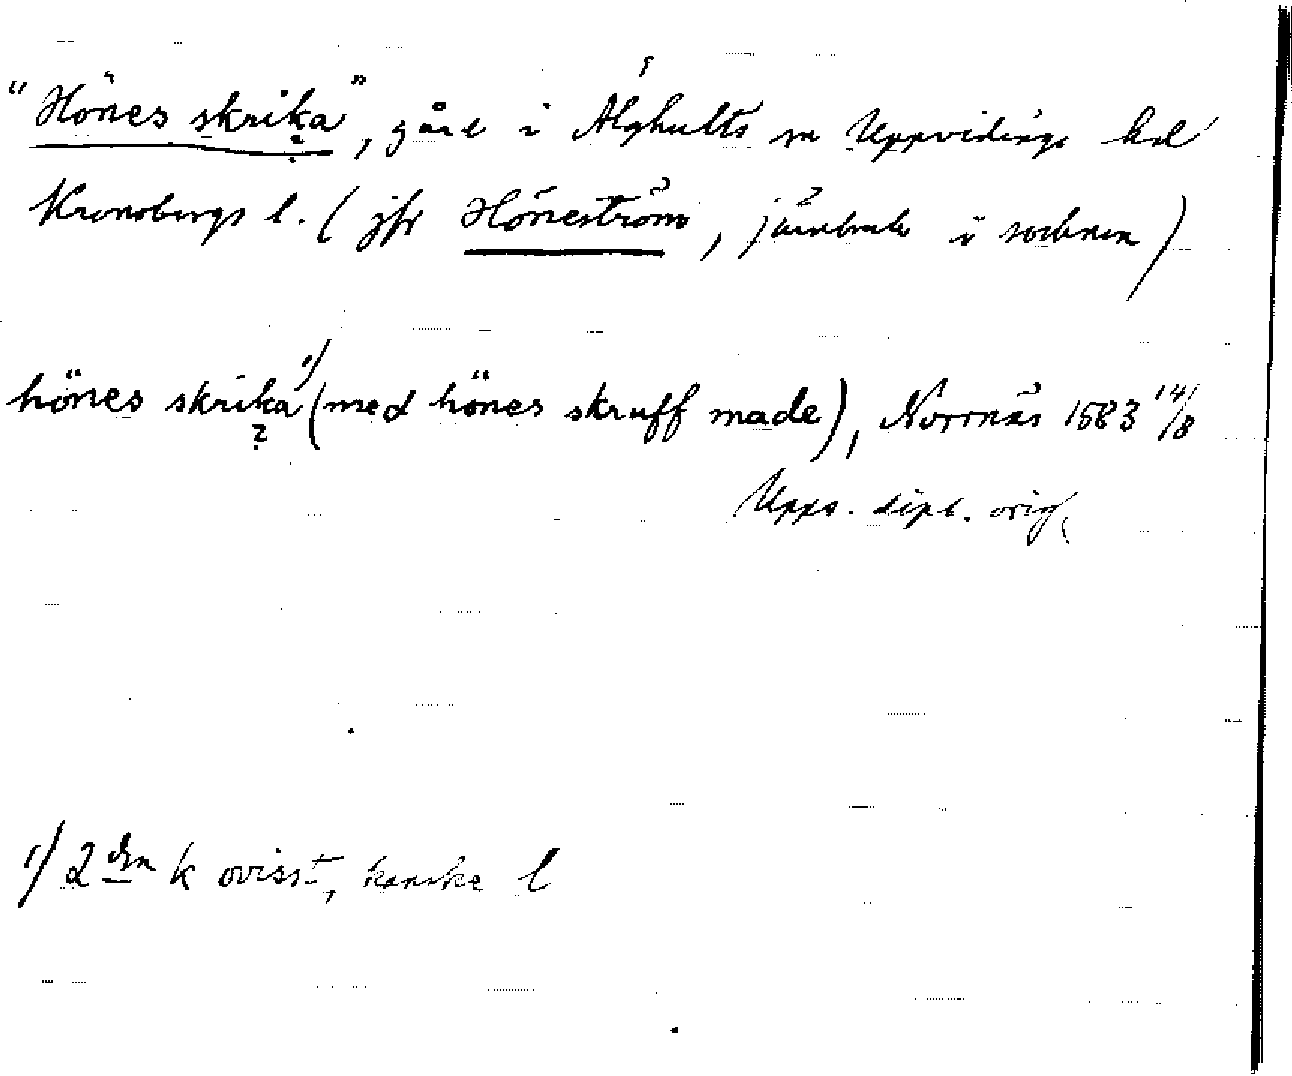 "Hönes skrika", gård i Älghults sn Uppvidinge hd
?
Kronobergs l. (jfr Höneström, järnbruk i socknen)
hönes skrika 1) (med hönes skruff made), Norrnäs 1583 14/8
?
Upps. dipl. orig.
1) 2 dra k ovisst, kanske l